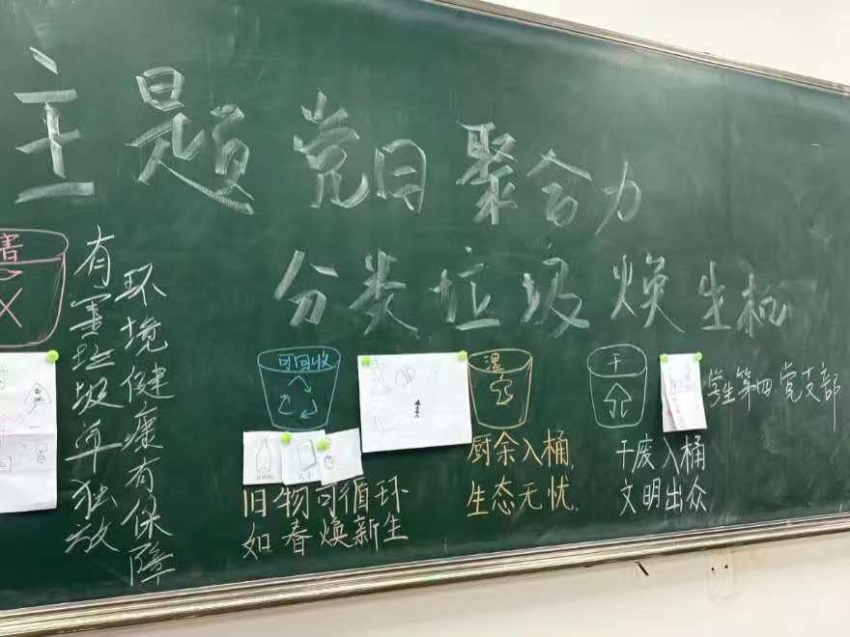 主题党日聚合力
分类垃圾焕生机
害
有害垃圾单独放
环境健康有保障
可回收
旧物可循环
如春焕新生
湿
厨余入桶,
生态无忧,
干
干废入桶
文明出众
学生第四党支部